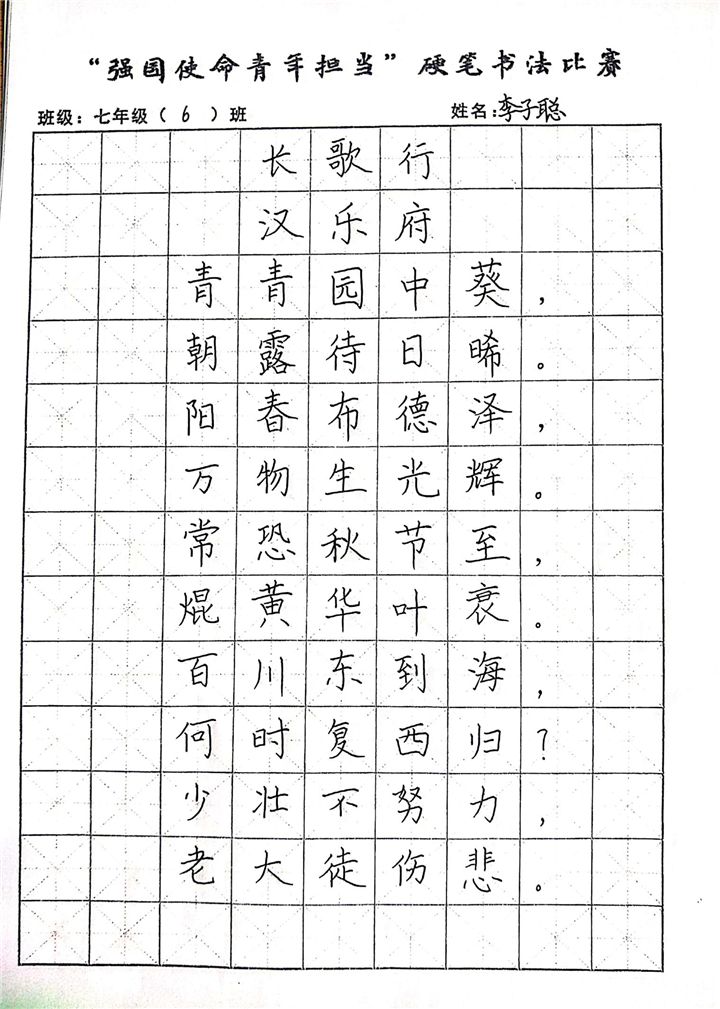 “强国使命青年担当”硬笔书法比赛
班级：七年级（6）班 姓名：李子聪
长歌行
汉乐府
青青园中葵，
朝露待日晞。
阳春布德泽，
万物生光辉。
常恐秋节至，
焜黄华叶衰。
百川东到海，
何时复西归？
少壮不努力，
老大徒伤悲。